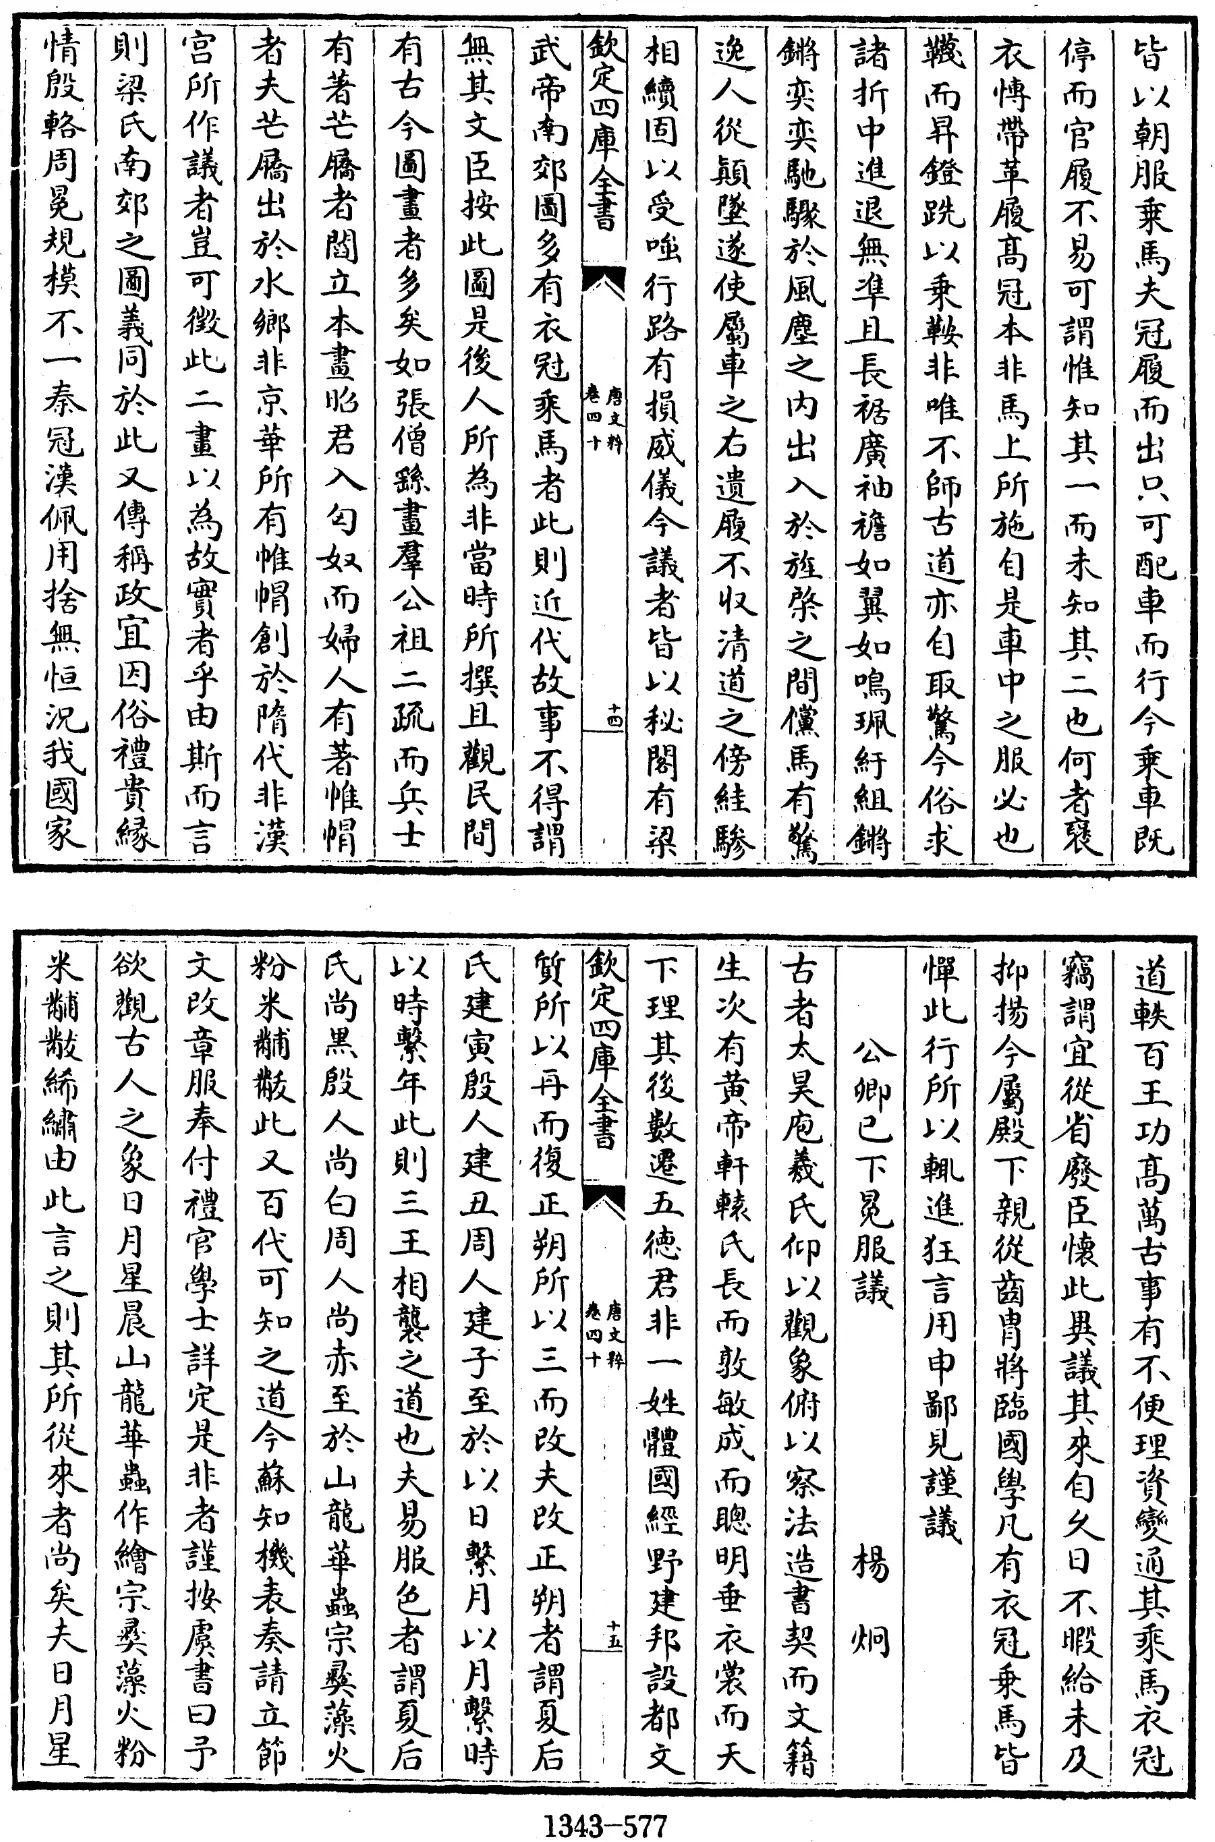 皆以朝服乗馬夫冠履而出只可配車而行今乗車既
停而官履不易可謂惟知其一而未知其二也何者褒
衣愽帶革履髙冠本非馬上所施自是車中之服必也
韈而昇鐙跣以乗鞍非唯不師古道亦自取驚今俗求
諸折中進退無凖且長裾廣袖襜如翼如鳴珮紆組鏘
鏘奕奕馳驟於風塵之内出入於旌棨之間儻馬有驚
逸人從顛墜遂使屬車之右遺履不收清道之傍絓驂
相續固以受嗤行路有損威儀今議者皆以秘閣有梁
欽定四庫全書
唐文粹
卷四十
十四
武帝南郊圖多有衣冠乗馬者此則近代故事不得謂
無其文臣按此圖是後人所為非當時所撰且觀民間
有古今圖畫者多矣如張僧繇畫羣公祖二疏而兵士
有著芒屩者閻立本畫昭君入匈奴而婦人有著帷㡌
者夫芒屩出於水鄉非京華所有帷㡌創於隋代非漢
宮所作議者豈可徴此二畫以為故實者乎由斯而言
則梁氏南郊之圖義同於此又傳稱政宜因俗禮貴縁
情殷輅周冕規模不一秦冠漢佩用捨無恒況我國家
道軼百王功髙萬古事有不便理資變通其乘馬衣冠
竊謂宜從省廢臣懷此異議其來自久日不暇給未及
抑揚今屬殿下親從齒胄將臨國學凡有衣冠乗馬皆
憚此行所以輒進狂言用申鄙見謹議
公卿已下冕服議 楊炯
古者太昊庖羲氏仰以觀象俯以察法造書契而文籍
生次有黄帝軒轅氏長而敦敏成而聰明垂衣裳而天
下理其後數遷五徳君非一姓體國經野建邦設都文
欽定四庫全書
唐文粹
卷四十
十五
質所以再而復正朔所以三而改夫改正朔者謂夏后
氏建寅殷人建丑周人建子至於以日繫月以月繫時
以時繫年此則三王相襲之道也夫易服色者謂夏后
氏尚黑殷人尚白周人尚赤至於山龍華蟲宗彝藻火
粉米黼黻此又百代可知之道今蘇知機表奏請立節
文改章服奉付禮官學士詳定是非者謹按虞書曰予
欲觀古人之象日月星晨山龍華蟲作繪宗彝藻火粉
米黼黻絺繡由此言之則其所從來者尚矣夫日月星
1343-577